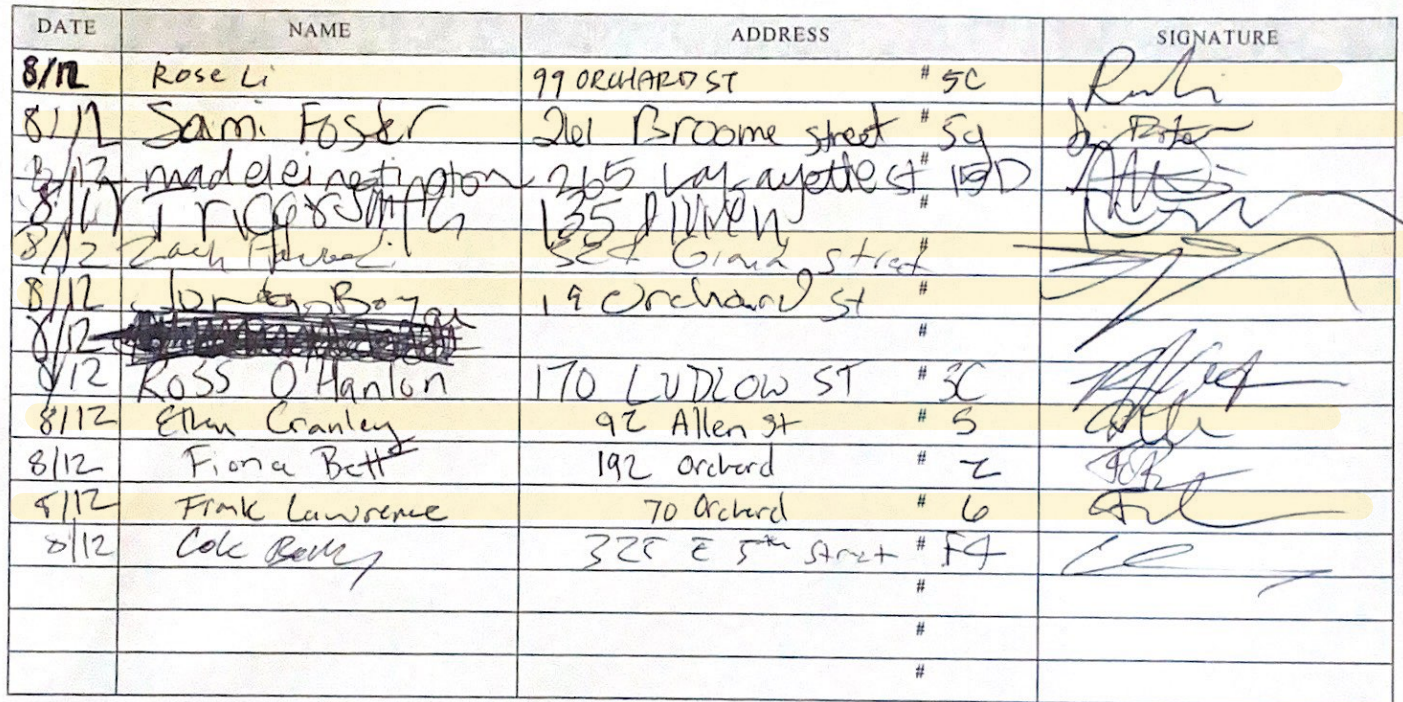 DATE NAME ADDRESS SIGNATURE
8/12 Rose Li 99 ORCHARD ST # 5C
8/12 Sami Foster 261 Broome street # 5g
8/12 madeleinetington 265 Lafayette st # 15D
8/12 Smith 135 #
8/12 Zach Grand street #
8/12 Jordan 19 Orchard st #
8/12 #
8/12 ROSS O'Hanlon 170 LUDLOW ST # 3C
8/12 Ethan Cranley 92 Allen st # 5
8/12 Fiona Bett 192 Orchard # 2
8/12 Frank Lawrence 70 Orchard # 6
8/12 Cole E 5th Street # F4
#
#
#